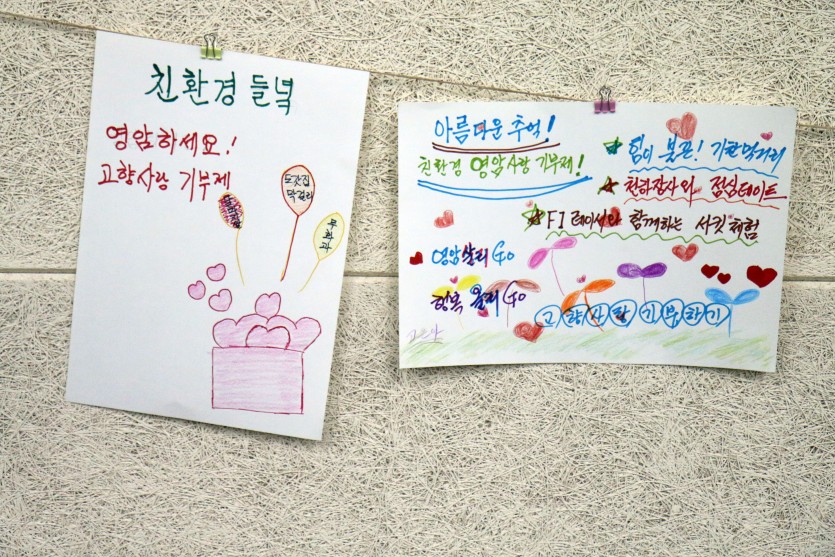 친환경 들녘
영암하세요!
고향사랑 기부제
도갓집
막걸리
무화과
아름다운 추억!
친환경 영암사랑 기부제!
힘이 불끈!
천하장사와 점심데이트
F1 레이서와 함께하는 서킷 체험
영암살리 Go
행복 올리 Go
고향사랑기부하기